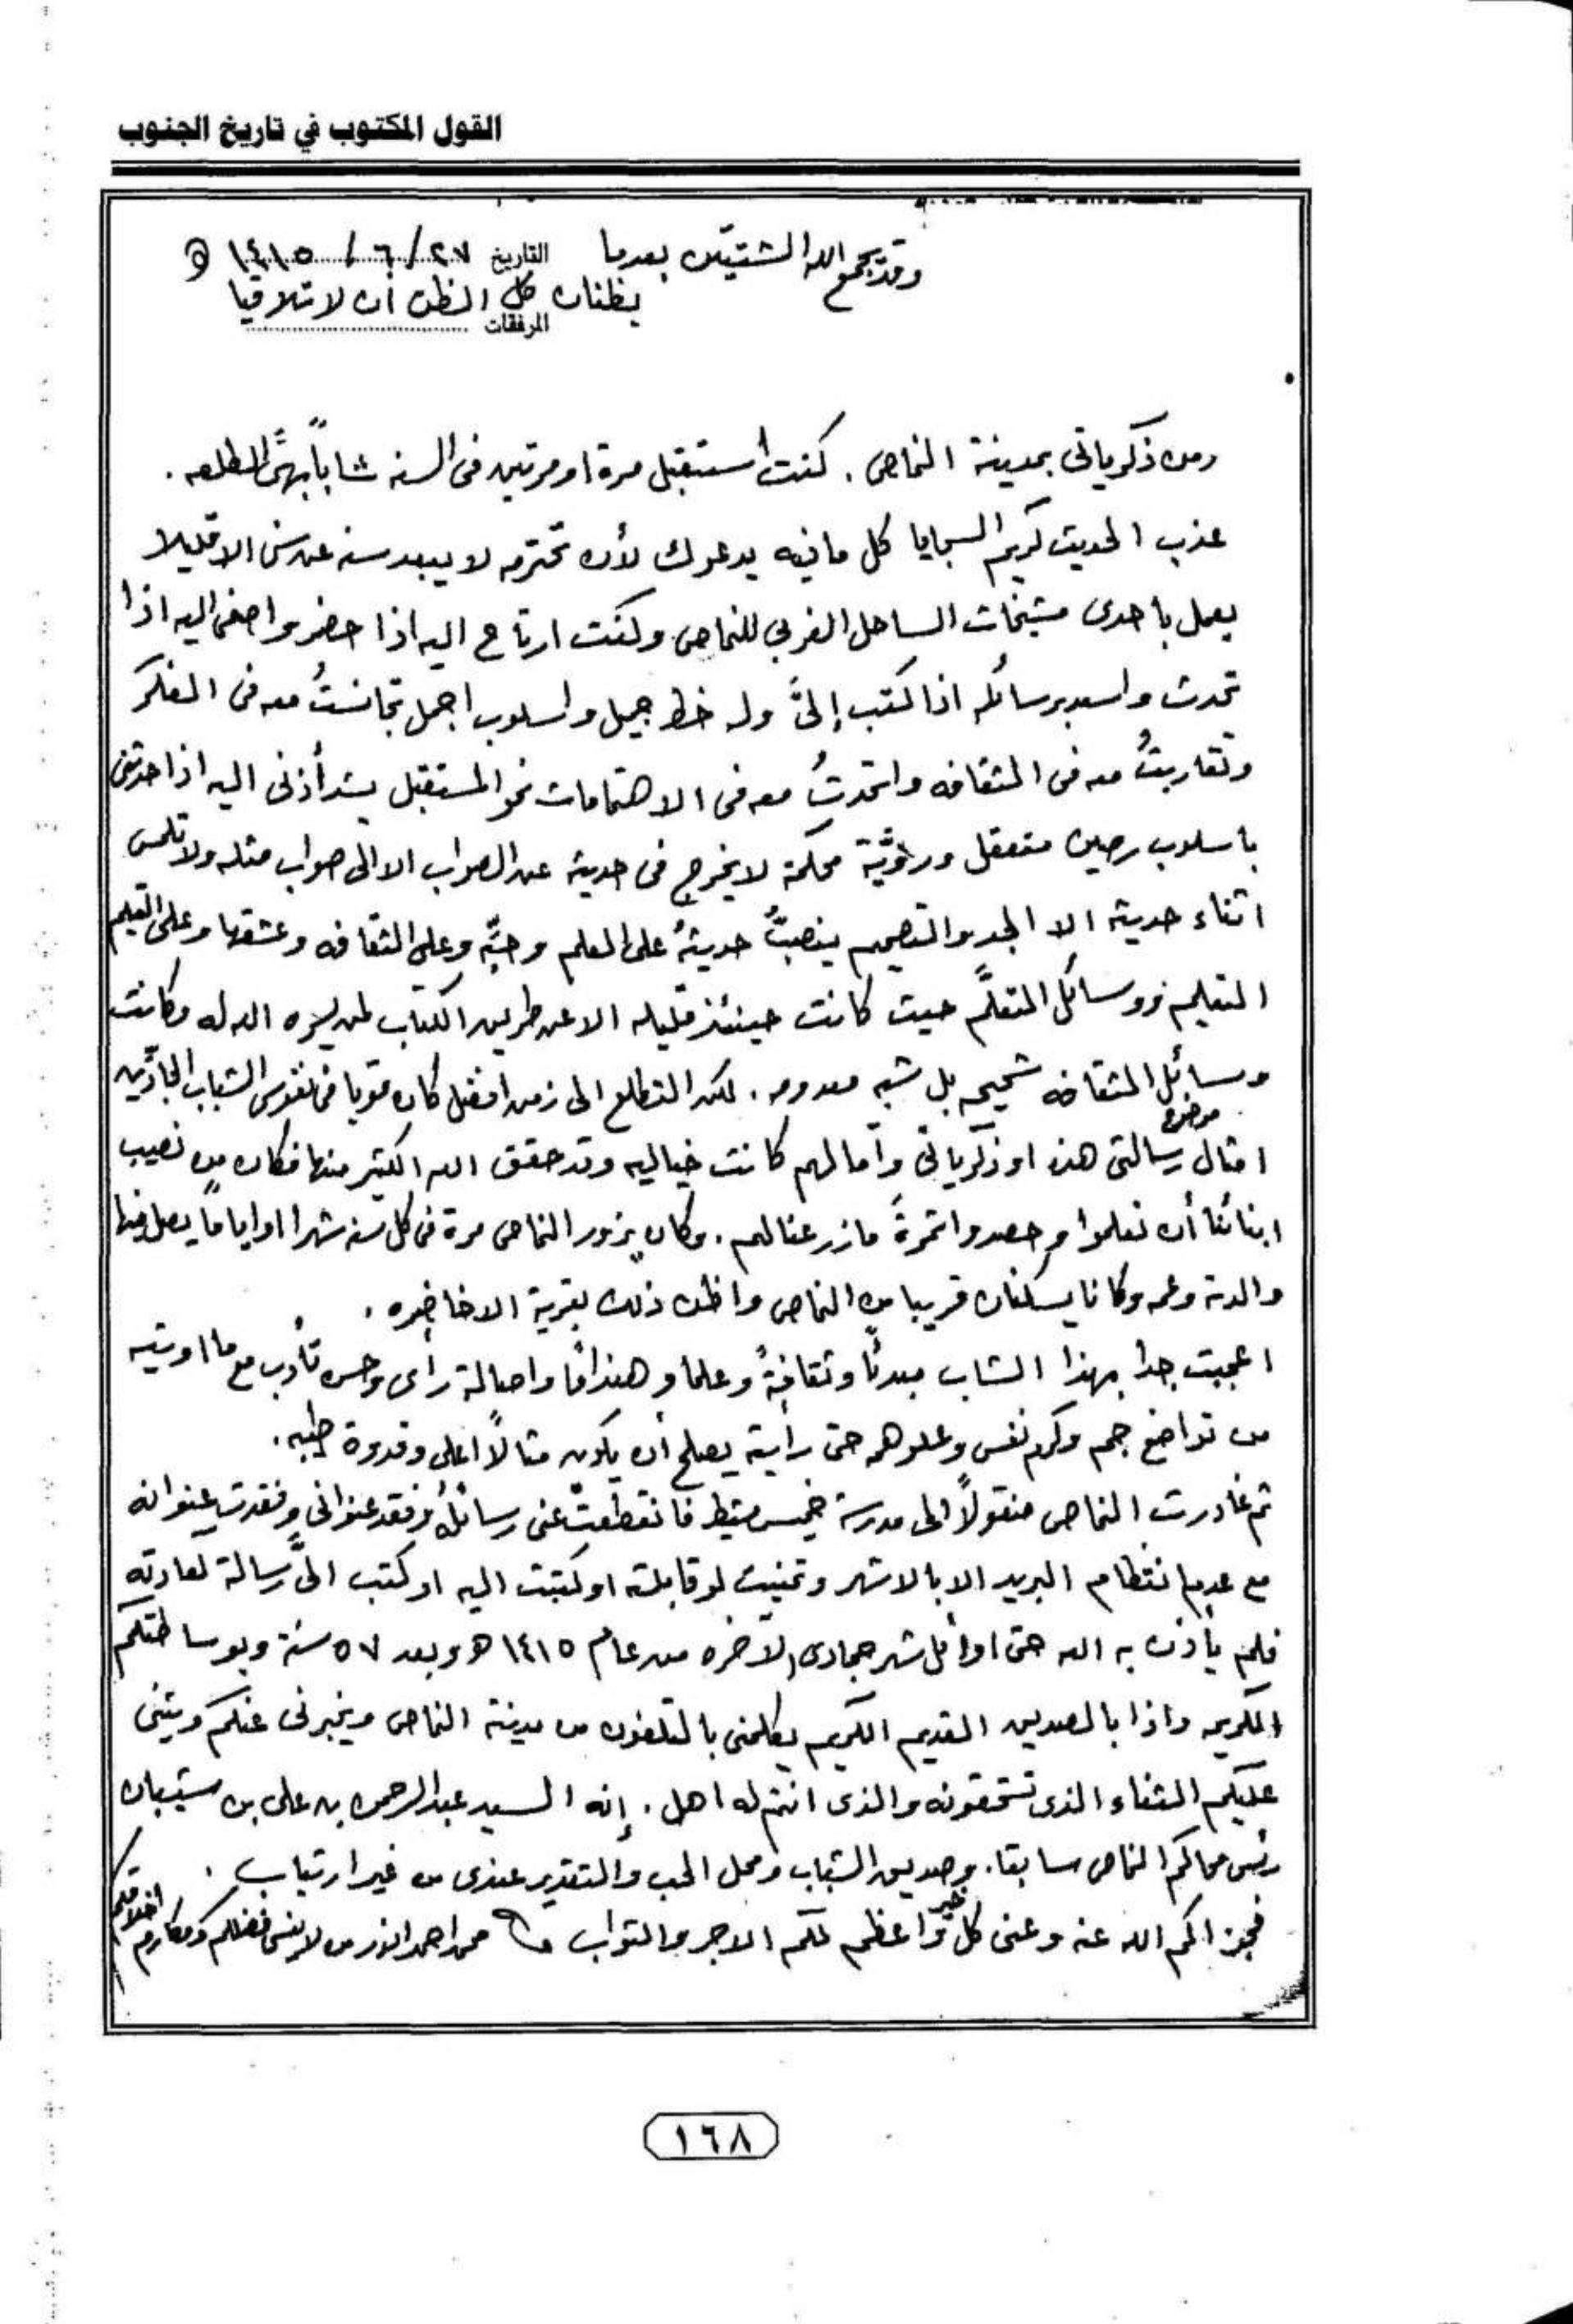 القول المكتوب في تاريخ الجنوب
وقد يجمع الله الشتيتين بعدما التاريخ ٢٧ / ٦ / ١٤١٥ هـ
يظنان كل الظن أن لا تلاقيا
المرفقات
ومن ذكرياتي بمدينة النماص . كنت أستقبل مرة او مرتين في السنه شاباً بهيَّ الطلعه .
عذب الحديث كريم السجايا كل ما فيه يدعوك لأن تحترمه لا يبعد سنه عن سني الا قليلا
يعمل باحدى مشيخات الساحل الغربي للنماص وكنت ارتاح اليه اذا حضر واصغى اليه اذا
تحدث واسعد برسائله اذا كتب إليَّ وله خط جميل واسلوب اجمل تجانستُ معه في الفكر
وتقاربتُ معه في الثقافه واتحدتُ معه في الاهتمامات نحو المستقبل يشد أذني اليه اذا حدثني
باسلوب رصين متعقل ورويَّة محكمة لا يخرج في حديثه عن الصواب الا الى صواب مثله ولا تلمس
اثناء حديثه الا الجد والتصميم ينصبُّ حديثهُ على العلم وحبِّه وعلى الثقافه وعشقها وعلى التعليم
التعليم ووسائل التعلُّم حيث كانت حينئذ قليله الا عن طريق الكتاب لمن يسره الله له وكانت
وسائل الثقافه شحيحه بل شبه معدومه . لكن التطلع الى زمن افضل كان قويا في نفوس الشباب الجادِّين
امثال موضوع رسالتي هذه او ذكرياتي وآمالهم كانت خياليه وقد حقق الله الكثير منها فكان من نصيب
ابنائنا أن تعلموا وحصدوا ثمرةَ ما زرعنا لهم . وكان يزور النماص مرة في كل سنه شهرا او اياماً يصل فيها
والدته وعمه وكانا يسكنان قريبا من النماص واظن ذلك بقرية الاخاضره .
اعجبت جدا بهذا الشاب مبدئاً وثقافةً وعلما وهنداماً واصالة رأى وحسن تأدب مع ما اوتيه
من تواضع جم وكرم نفس وعلو همه حتى رأيته يصلح أن يكون مثالاً اعلى وقدوة طيبه .
ثم غادرت النماص منقولاً الى مدرسة خميس مشيط فانقطعت عني رسائله وفقد عنواني وفقدت عنوانه
مع عدم انتظام البريد الا بالاشهر وتمنيت لو قابلته او كتبت اليه او كتب اليَّ رسالة كعادته
فلم يأذن به الله حتى اوائل شهر جمادى الآخره من عام ١٤١٥ هـ وبعد ٥٧ سنة وبوساطتكم
الكريمه واذا بالصديق القديم الكريم يكلمني بالتلفون من مدينة النماص ويخبرني عنكم ويثني
عليكم الثناء الذي تستحقونه والذي انتم له اهل . إنه السيد عبد الرحمن بن علي بن شيبان
رئيس محاكم النماص سابقا. وصديق الشباب ومحل الحب والتقدير عندي من غير ارتياب .
فجزاكم الله عنه وعني كل خير واعظم لكم الاجر والثواب محمد احمد انور من لا ينسى فضلكم ومكارم اخلاقكم
١٦٨